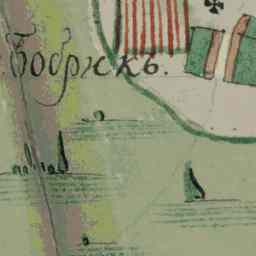 Бобрюкъ.